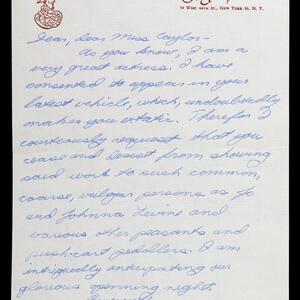 59 West 44th St., New York 36, N.Y.
Dear, dear Miss Taylor-
As you know, I am a
very great actress. I have
consented to appear in your
latest vehicle, which, undoubtedly
makes you extatic. Therefor I
courteously request that you
cease and desist from showing
said work to such common,
coarse, vulgar persons as Jo
and Johnna Levine and
various other peasants and
push-cart pedollers. I am
intriguedly anticipating our
glorious openning night.